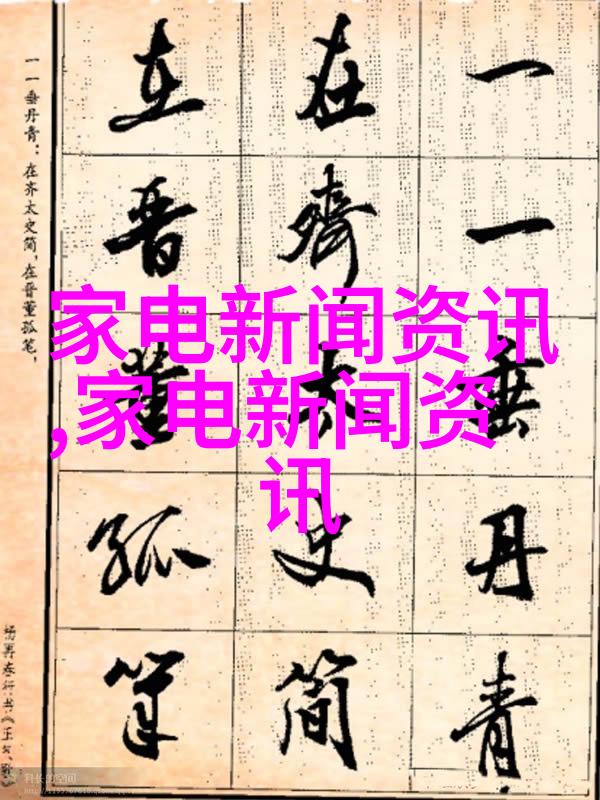 一一垂丹青
在齐太史简
在晋董孤笔
一一垂丹青：在齐太史简，在晋董孤笔，
家电新闻资讯
,家电新闻资
讯
科长的空间